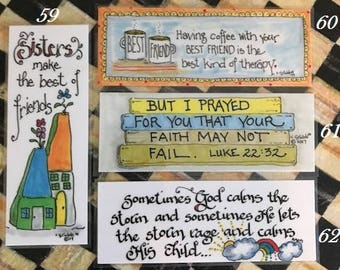 59
Sisters
make
the best of
friends
60
BEST FRIEND
Having coffee with your
BEST FRIEND is the
best kind of therapy.
61
BUT I PRAYED
FOR YOU THAT YOUR
FAITH MAY NOT
FAIL. LUKE 22:32
62
Sometimes God calms the
storm and sometimes He lets
the storm rage and calms
His child...